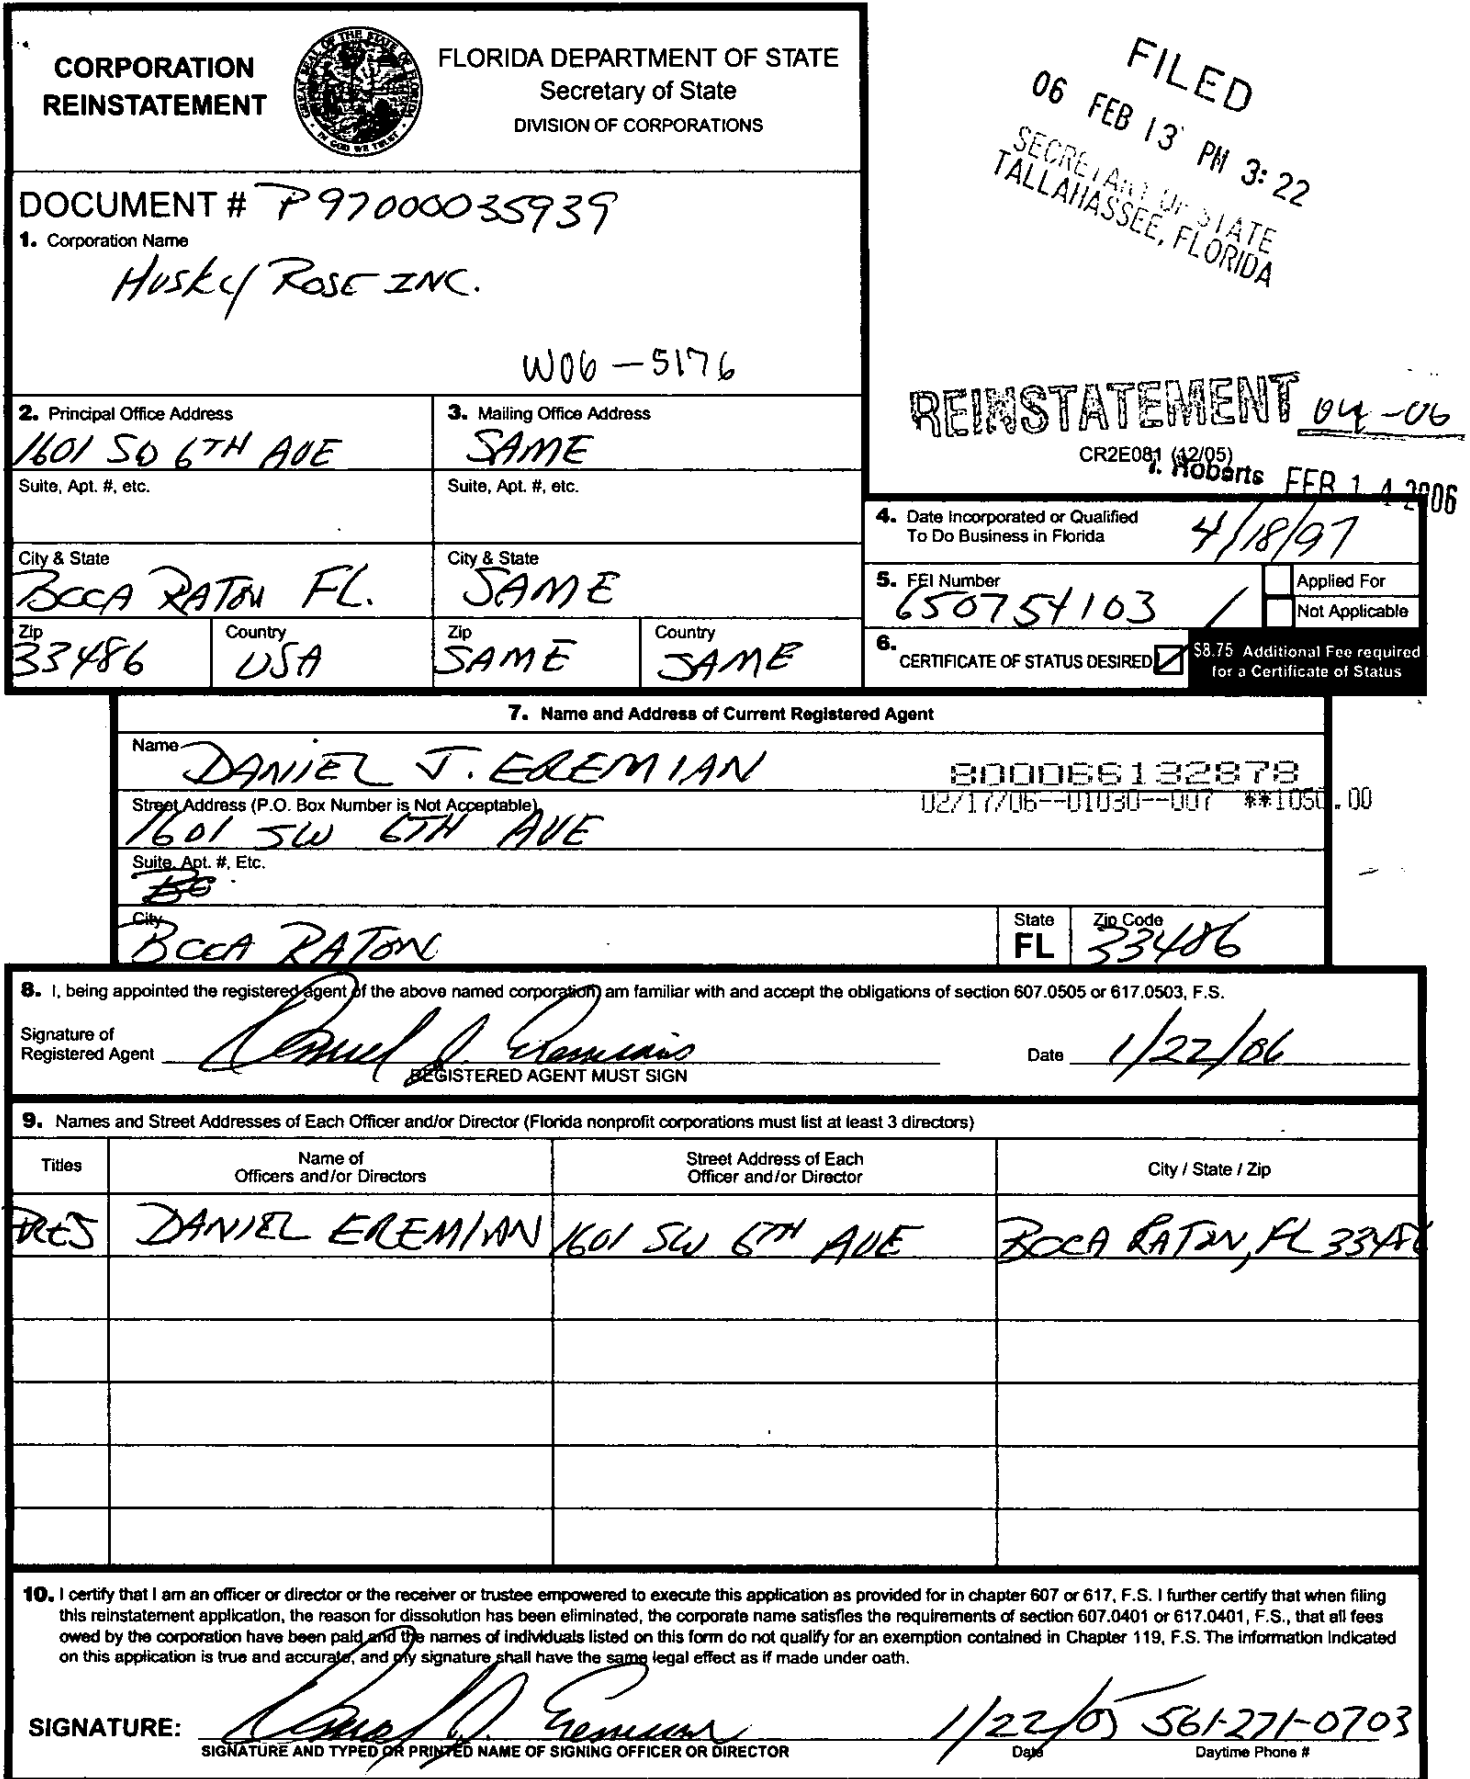 CORPORATION
REINSTATEMENT
GREAT SEAL OF THE STATE OF FLORIDA
IN GOD WE TRUST
FLORIDA DEPARTMENT OF STATE
Secretary of State
DIVISION OF CORPORATIONS
FILED
06 FEB 13 PM 3:22
SECRETARY OF STATE
TALLAHASSEE, FLORIDA
DOCUMENT # P97000035939
1. Corporation Name
HUSKY ROSE INC.
W06-5176
REINSTATEMENT 04-06
CR2E081 (12/05)
T. Roberts FEB 14 2006
2. Principal Office Address
1601 SW 6TH AVE
Suite, Apt. #, etc.
City & State
BOCA RATON FL.
Zip
33486
Country
USA
3. Mailing Office Address
SAME
Suite, Apt. #, etc.
City & State
SAME
Zip
SAME
Country
SAME
4. Date Incorporated or Qualified
To Do Business in Florida
4/18/97
5. FEI Number
650754103
Applied For
Not Applicable
6. CERTIFICATE OF STATUS DESIRED
$8.75 Additional Fee required
for a Certificate of Status
7. Name and Address of Current Registered Agent
Name
DANIEL J. EREMIAN
800066132878
02/17/06--01030--007 **1050.00
Street Address (P.O. Box Number is Not Acceptable)
1601 SW 6TH AVE
Suite, Apt. #, Etc.
City
BOCA RATON
State
FL
Zip Code
33486
8. I, being appointed the registered agent of the above named corporation, am familiar with and accept the obligations of section 607.0505 or 617.0503, F.S.
Signature of
Registered Agent
Daniel J. Eremian
REGISTERED AGENT MUST SIGN
Date 1/22/06
9. Names and Street Addresses of Each Officer and/or Director (Florida nonprofit corporations must list at least 3 directors)
Titles
Name of
Officers and/or Directors
Street Address of Each
Officer and/or Director
City / State / Zip
PRES DANIEL EREMIAN 1601 SW 6TH AVE BOCA RATON, FL 33486
10. I certify that I am an officer or director or the receiver or trustee empowered to execute this application as provided for in chapter 607 or 617, F.S. I further certify that when filing
this reinstatement application, the reason for dissolution has been eliminated, the corporate name satisfies the requirements of section 607.0401 or 617.0401, F.S., that all fees
owed by the corporation have been paid and the names of individuals listed on this form do not qualify for an exemption contained in Chapter 119, F.S. The information indicated
on this application is true and accurate, and my signature shall have the same legal effect as if made under oath.
SIGNATURE: Daniel J. Eremian 1/22/05 561-271-0703
SIGNATURE AND TYPED OR PRINTED NAME OF SIGNING OFFICER OR DIRECTOR
Date
Daytime Phone #